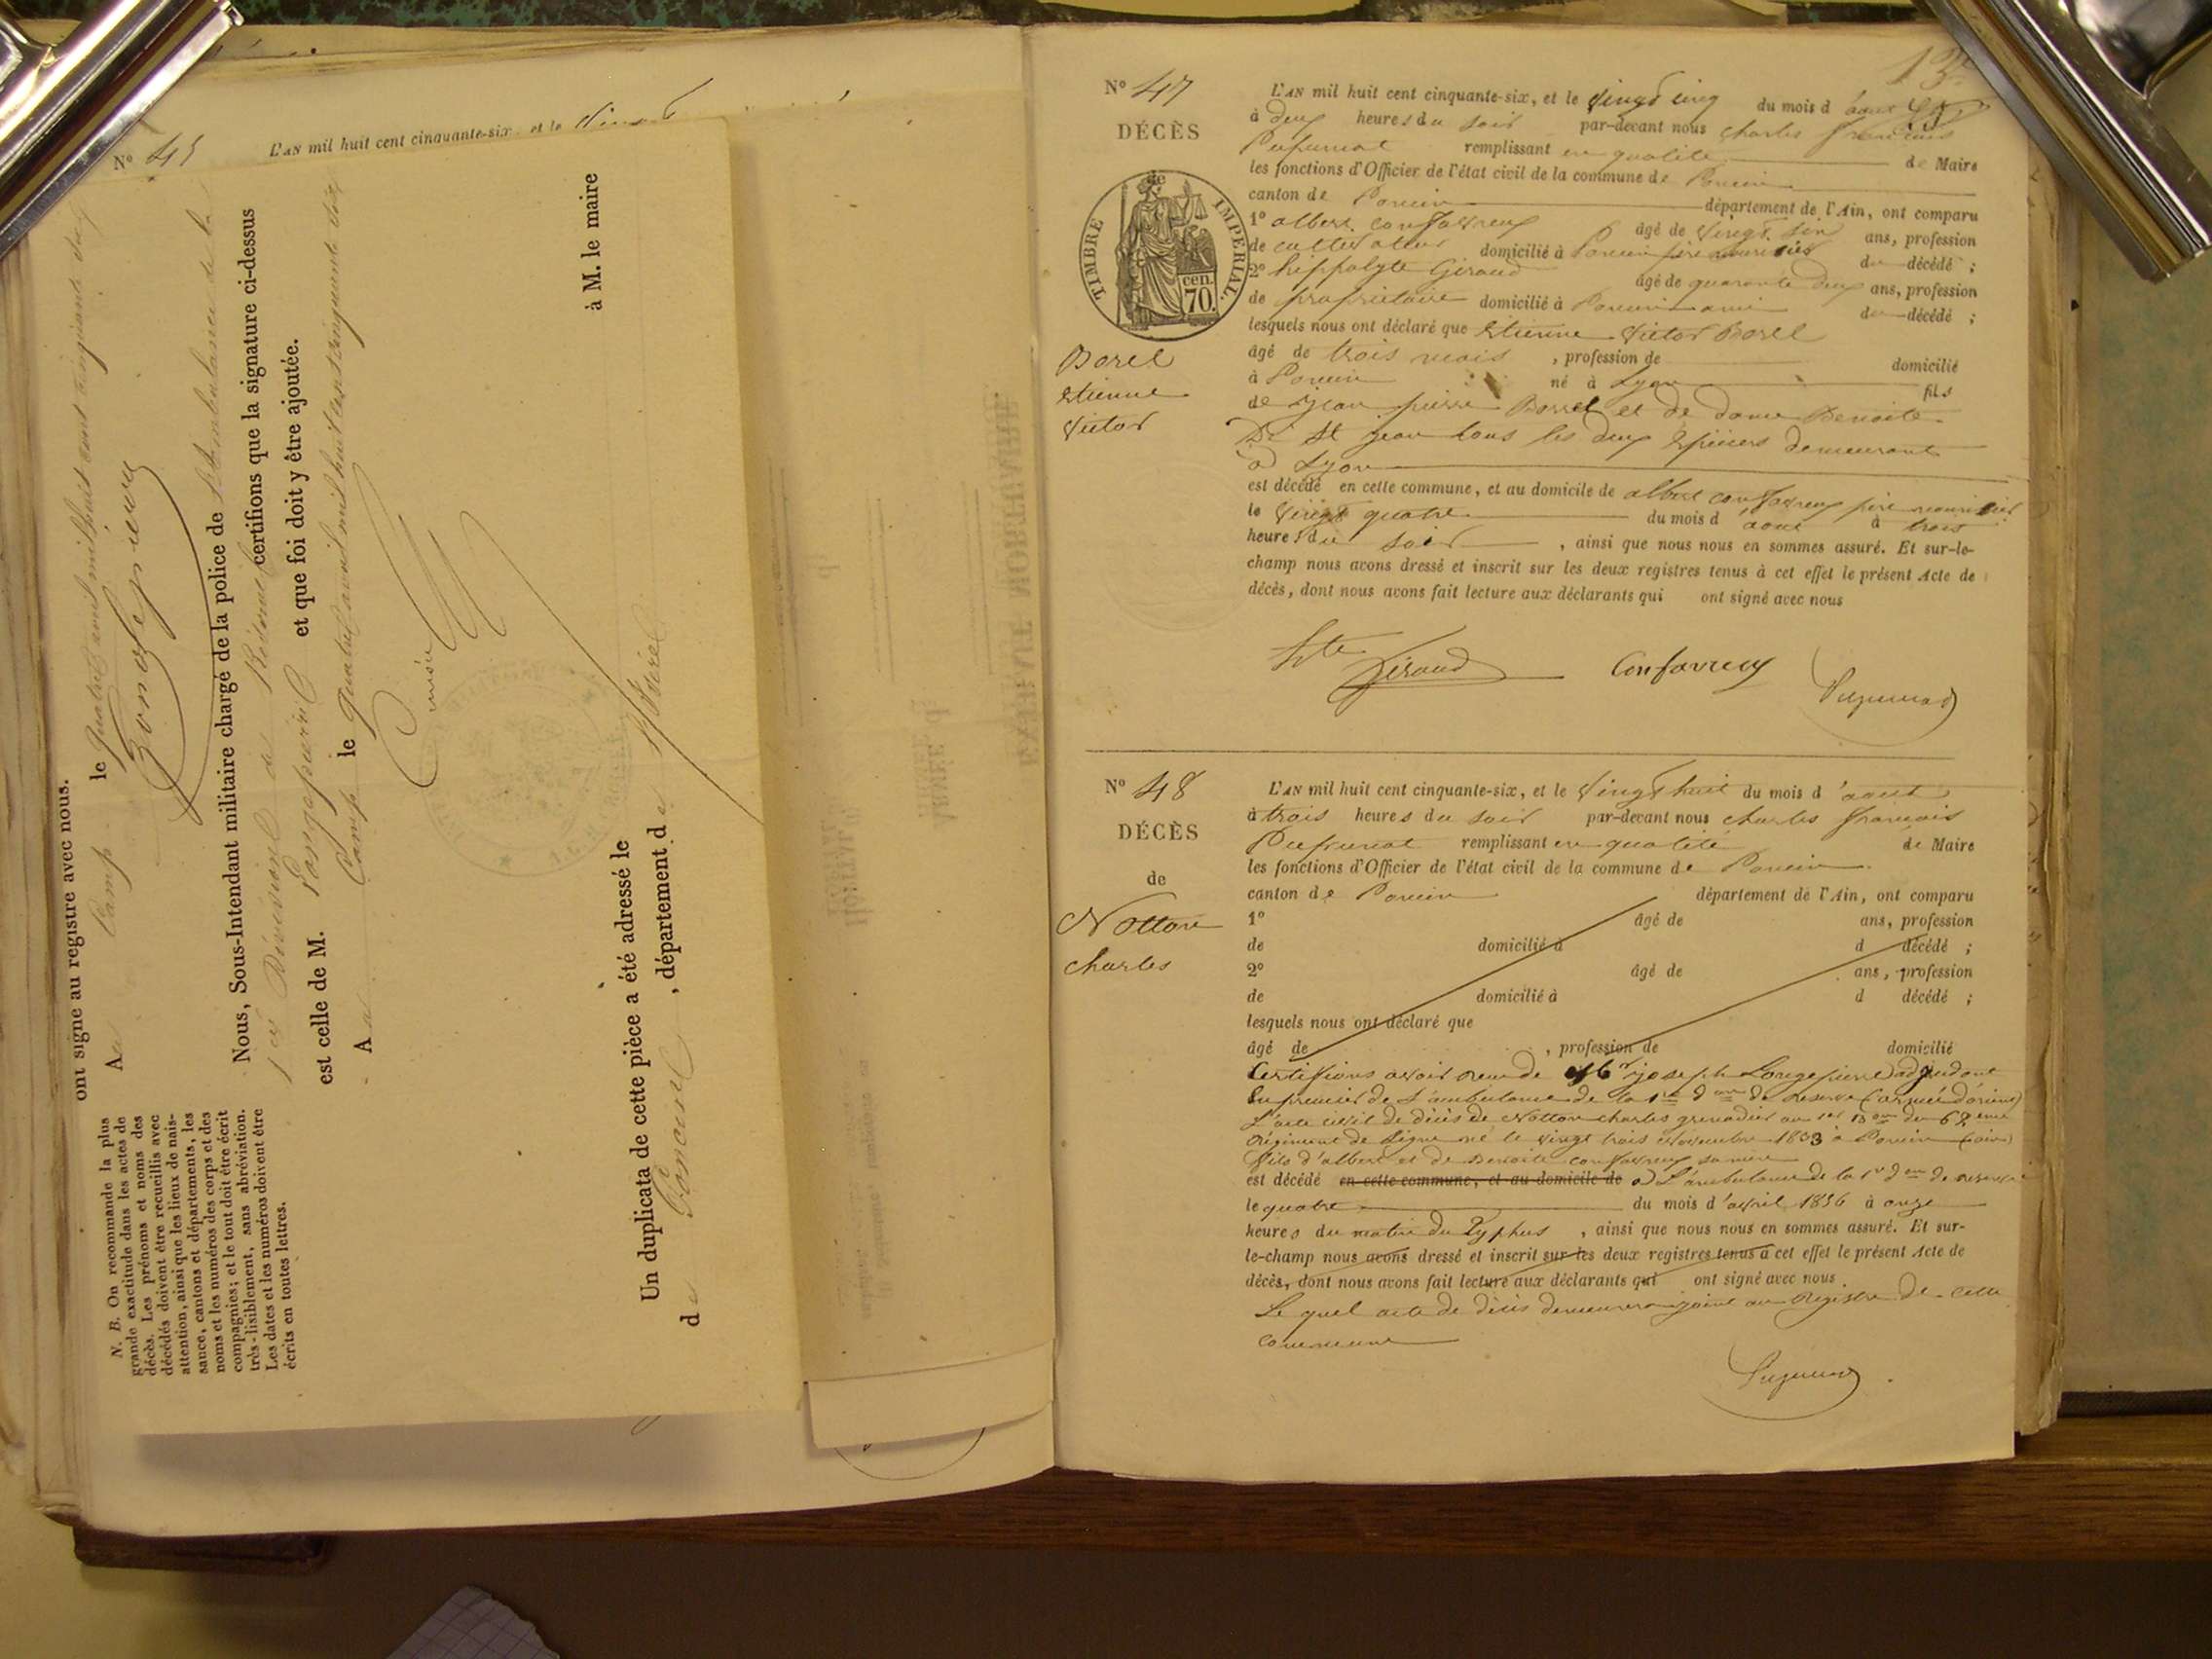 ont signé au registre avec nous.
A Camp le quatre avril mil huit cent cinquante six
Longepierre
Nous, Sous-Intendant militaire chargé de la police de l'Ambulance de la
1ere Division de Réserve certifions que la signature ci-dessus
est celle de M. Longepierre et que foi doit y être ajoutée.
A Camp le quatre avril mil huit cent cinquante six
à M. le maire
Un duplicata de cette pièce a été adressé le
d Poncin, département d
N. B. On recommande la plus
grande exactitude dans les actes de
décès. Les prénoms et noms des
décédés doivent être recueillis avec
attention, ainsi que les lieux de nais-
sance, cantons et départements, les
noms et les numéros des corps et des
compagnies; et le tout doit être écrit
très-lisiblement, sans abréviation.
Les dates et les numéros doivent être
écrits en toutes lettres.
N° 45
L'AN mil huit cent cinquante-six et le
N° 47
DÉCÈS
de
TIMBRE IMPÉRIAL.
70 cen.
Borel
Etienne
Victor
L'AN mil huit cent cinquante-six, et le vingt cinq du mois d'aout
à deux heures du soir par-devant nous Charles François
remplissant en qualité de Maire
les fonctions d'Officier de l'état civil de la commune de Poncin
canton de Poncin département de l'Ain, ont comparu
1° albert confavreux âgé de vingt six ans, profession
de cultivateur domicilié à Poncin père nourricier du décédé ;
2° hippolyte Giraud âgé de quarante deux ans, profession
de propriétaire domicilié à Poncin ami du décédé ;
lesquels nous ont déclaré que Etienne Victor Borel
âgé de trois mois, profession de domicilié
à Poncin né à Lyon fils
de jean pierre Borrel et de dame Benoite
De St jean tous les deux Epiciers demeurant
à Lyon
est décédé en cette commune, et au domicile de albert confavreux père nourricier
le vingt quatre du mois d'aout à trois
heures du soir, ainsi que nous nous en sommes assuré. Et sur-le-
champ nous avons dressé et inscrit sur les deux registres tenus à cet effet le présent Acte de
décès, dont nous avons fait lecture aux déclarants qui ont signé avec nous
Hte Giraud Confavreux
N° 48
DÉCÈS
de
Notton
Charles
L'AN mil huit cent cinquante-six, et le vingt huit du mois d'aout
à trois heures du soir par-devant nous Charles François
remplissant en qualité de Maire
les fonctions d'Officier de l'état civil de la commune de Poncin
canton de Poncin département de l'Ain, ont comparu
1° âgé de ans, profession
de domicilié à d décédé ;
2° âgé de ans, profession
de domicilié à d décédé ;
lesquels nous ont déclaré que
âgé de , profession de domicilié
Certifions avoir reçu de Mr joseph Longepierre adjudant
en premier de l'ambulance de la 1re don de reserve (armée d'orient)
l'acte civil de décès de Notton charles grenadier au 1er Bon du 62eme
Régiment de Ligne né le vingt trois Novembre 1833 à Poncin (ain)
fils d'albert et de Benoite confavreux sa mère
est décédé en cette commune, et au domicile de à L'ambulance de la 1re don de reserve
le quatre du mois d'avril 1856 à onze
heures du matin du Typhus, ainsi que nous nous en sommes assuré. Et sur-
le-champ nous avons dressé et inscrit sur les deux registres tenus à cet effet le présent Acte de
décès, dont nous avons fait lecture aux déclarants qui ont signé avec nous.
Le quel acte de décès demeurera joint au Registre de cette
commune